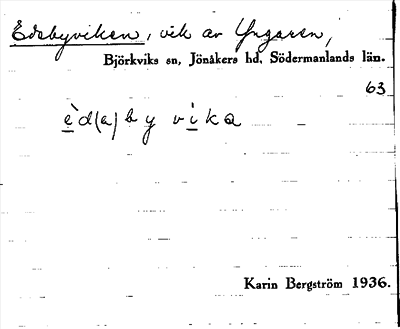 Edebyviken, vik av Yngaren,
Björkviks sn, Jönåkers hd, Södermanlands län.
63
èd(a)byvika
Karin Bergström 1936.